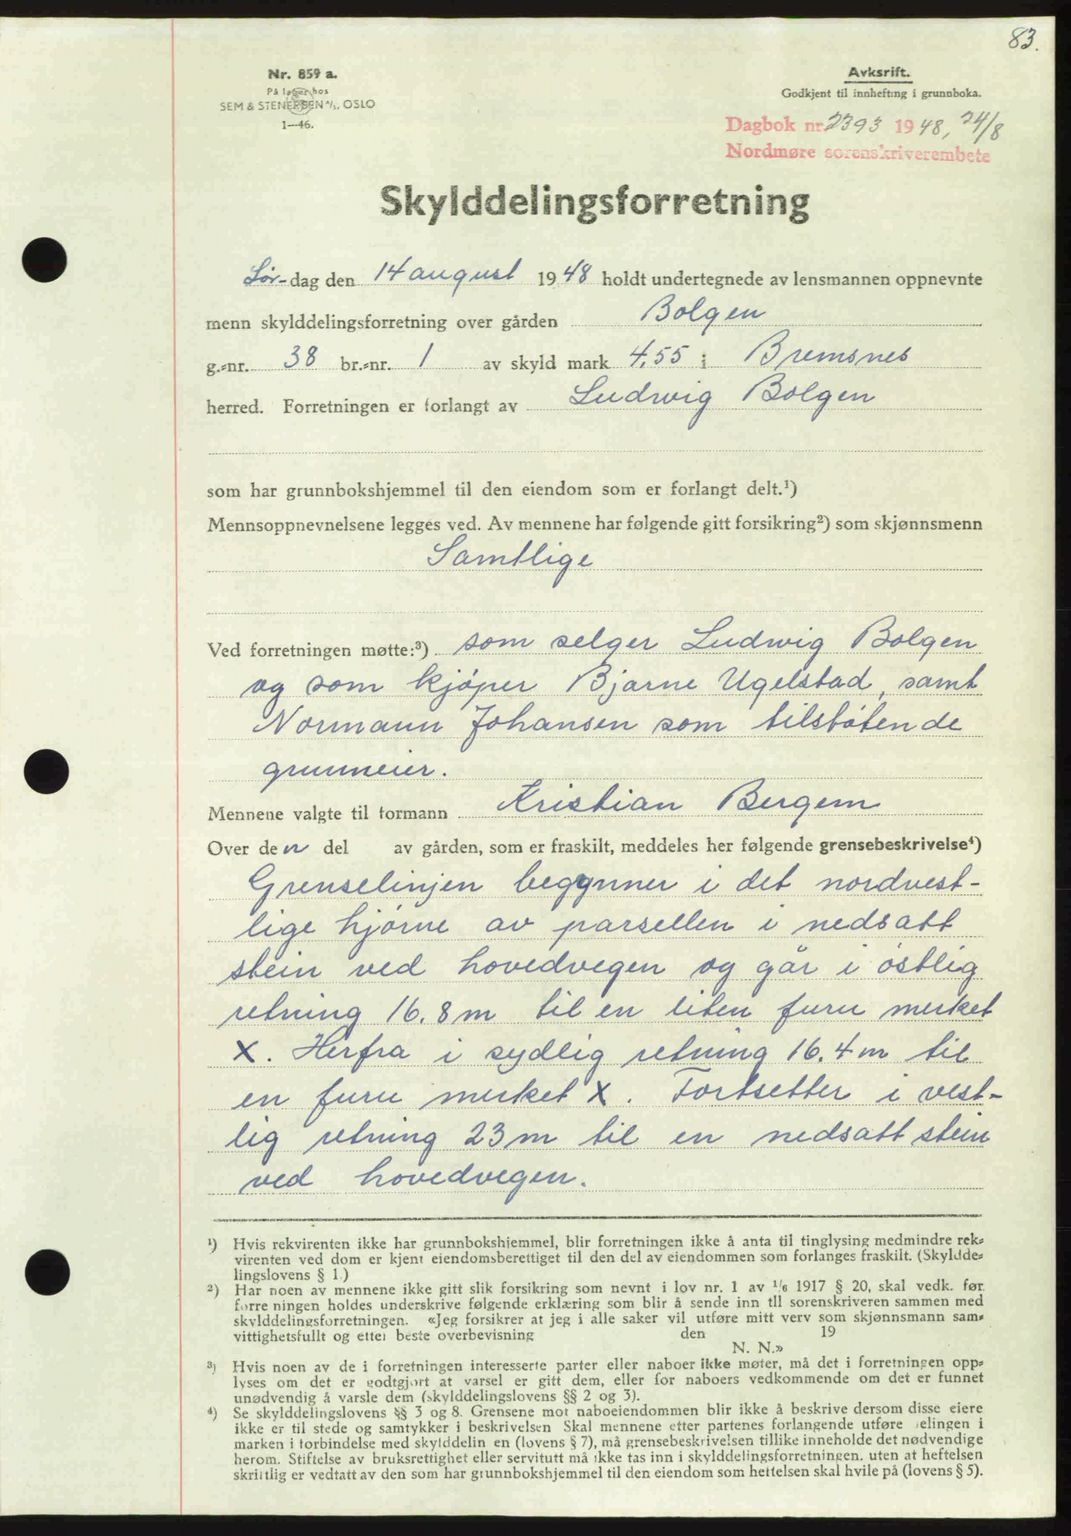 83.
Nr. 859 a.
På lager hos
SEM & STENERSEN A/S, OSLO
1—46.
Avksrift.
Godkjent til innhefting i grunnboka.
Dagbok nr. 2393 1948, 24/8
Nordmøre sorenskriverembete
Skylddelingsforretning
Lør-dag den 14 august 1948 holdt undertegnede av lensmannen oppnevnte
menn skylddelingsforretning over gården Bolgen
g.-nr. 38 br.-nr. 1 av skyld mark 4,55 i Bremsnes
herred. Forretningen er forlangt av Ludwig Bolgen
som har grunnbokshjemmel til den eiendom som er forlangt delt.¹)
Mennsoppnevnelsene legges ved. Av mennene har følgende gitt forsikring²) som skjønnsmenn
Samtlige
Ved forretningen møtte:³) som selger Ludwig Bolgen
og som kjøper Bjarne Ugelstad, samt
Normann Johansen som tilstøtende
grunneier.
Mennene valgte til formann Kristian Bergem
Over den del av gården, som er fraskilt, meddeles her følgende grensebeskrivelse⁴)
Grenselinjen begynner i det nordvest-
lige hjørne av parsellen i nedsatt
stein ved hovedvegen og går i østlig
retning 16.8 m til en liten furu merket
X. Herfra i sydlig retning 16.4 m til
en furu merket X. Fortsetter i vest-
lig retning 23 m til en nedsatt stein
ved hovedvegen.
¹) Hvis rekvirenten ikke har grunnbokshjemmel, blir forretningen ikke å anta til tinglysing medmindre rek-
virenten ved dom er kjent eiendomsberettiget til den del av eiendommen som forlanges fraskilt. (Skyldde-
lingslovens § 1.)
²) Har noen av mennene ikke gitt slik forsikring som nevnt i lov nr. 1 av ¹/6 1917 § 20, skal vedk. før
forretningen holdes underskrive følgende erklæring som blir å sende inn til sorenskriveren sammen med
skylddelingsforretningen. «Jeg forsikrer at jeg i alle saker vil utføre mitt verv som skjønnsmann sam-
vittighetsfullt og etter beste overbevisning den 19
N. N.»
³) Hvis noen av de i forretningen interesserte parter eller naboer ikke møter, må det i forretningen opp-
lyses om det er godtgjort at varsel er gitt dem, eller for naboers vedkommende om det er funnet
unødvendig å varsle dem (skylddelingslovens §§ 2 og 3).
⁴) Se skylddelingslovens §§ 3 og 8. Grensene mot naboeiendommen blir ikke å beskrive dersom disse eiere
ikke er til stede og samtykker i beskrivelsen Skal mennene etter partenes forlangende utføre delingen i
marken i forbindelse med skylddelingen (lovens § 7), må grensebeskrivelsen tillike inneholde det nødvendige
herom. Stiftelse av bruksrettighet eller servitutt må ikke tas inn i skylddelingsforretningen, uten at heftelsen
skriftlig er vedtatt av den som har grunnbokshjemmel til den eiendom som heftelsen skal hvile på (lovens § 5).